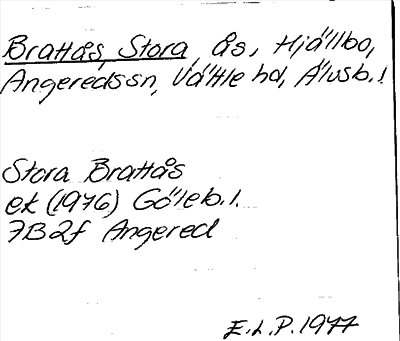 Brattås, Stora, ås, Hjällbo,
Angeredssn, Vättle hd, Älvsb.l
Stora Brattås
ek (1976) Göteb.l.
7B2f Angered
E.L.P. 1977